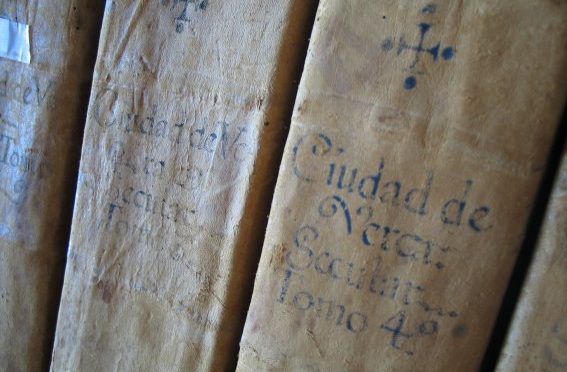 de V
Tomo
Ciudad de Ve
Secular
Tomo
Ciudad de
Veracr:
Secular:
Tomo 4º